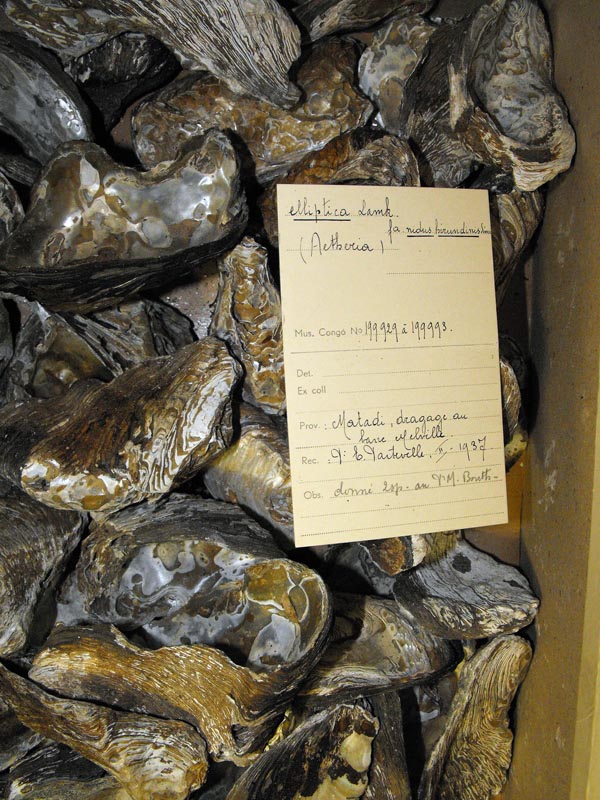 elliptica Lamk.
fa nidus hirundinis Lam.
(Aetheria)
Mus. Congo No 199929 à 199993.
Det.
Ex coll
Prov. : Matadi, dragage au
banc Melville
Rec. : Dr E. Dartevelle, - 1937
Obs. donné 2 sp. au Dr M.